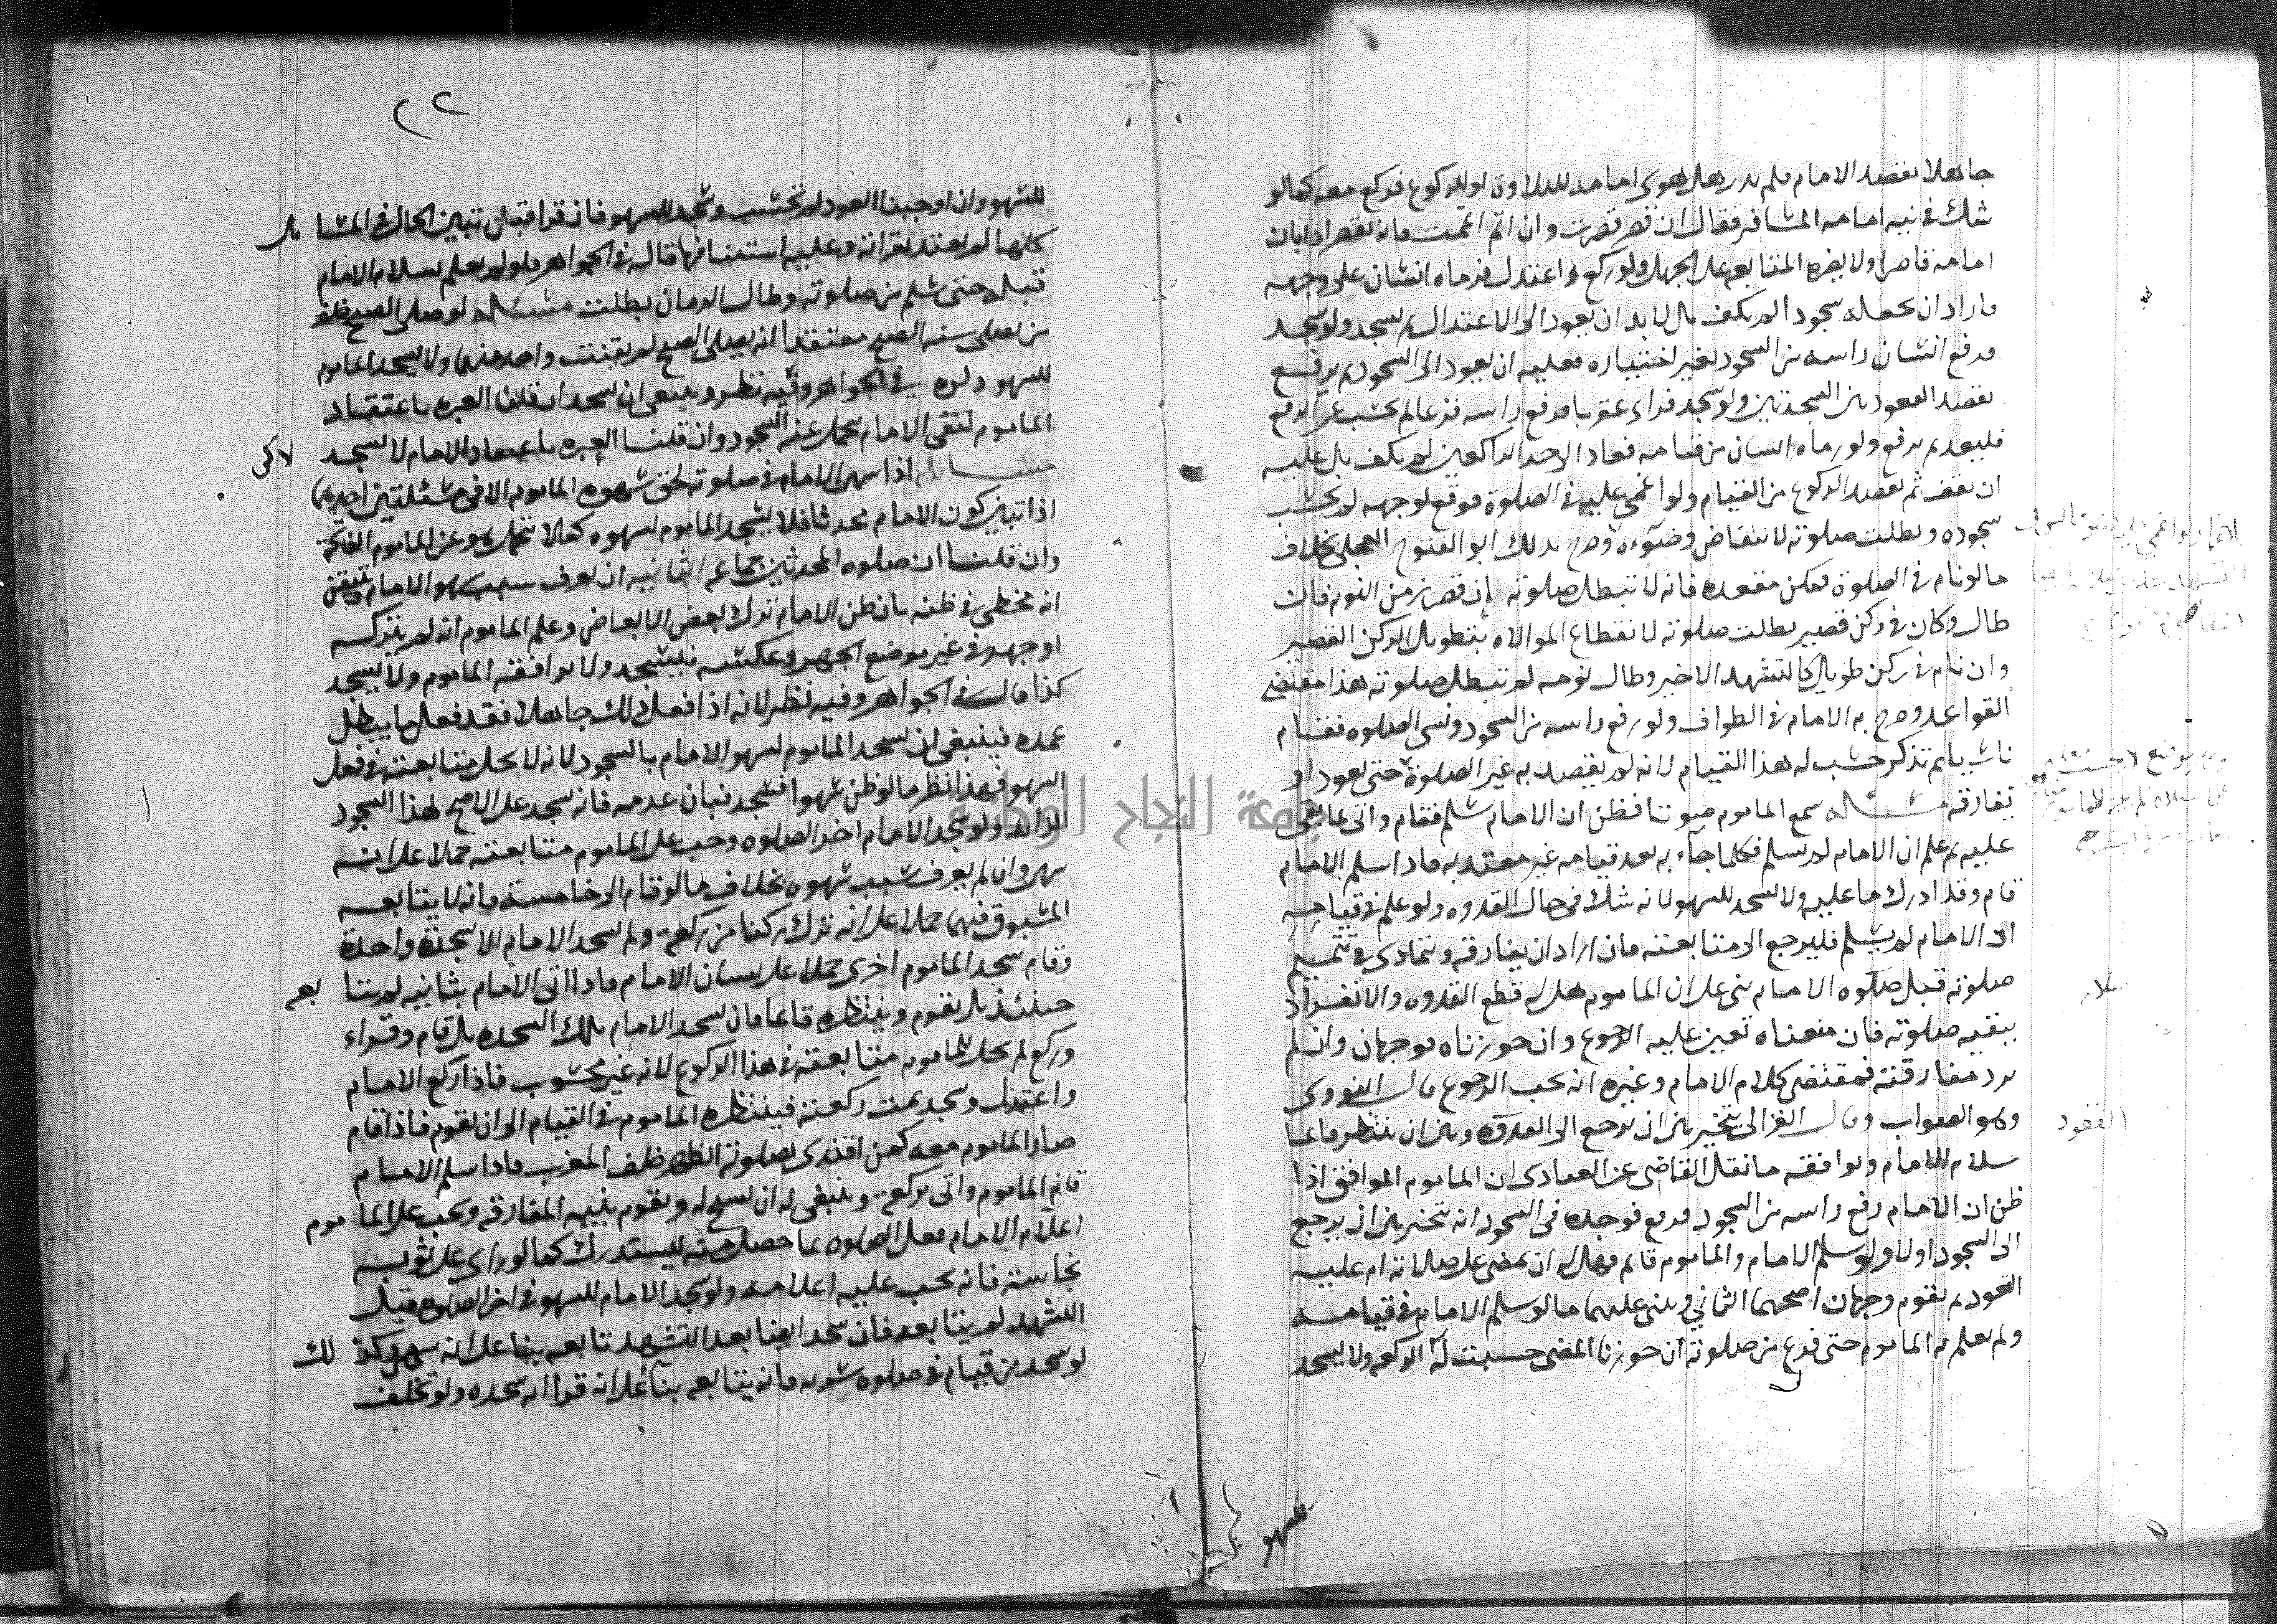 جاهلا بقصد الامام فلم يدر هل هوى امامه للتلاوة او للركوع فركع معه كما لو
شك في نيه امامه المسافر فقال ان قصر قصرت وان اتم اتممت فانه يقصر اذا بان
امامه قاصرا ولا يضره المتابعه على الجهل ولو ركع واعتدل فرماه انسان على وجهه
فاراد ان يجعله سجودا لم يكف بل لا بد ان يعود الى الاعتدال ثم يسجد ولو سجد
فرفع انسان راسه من السجود بغير اختياره فعليه ان يعود الى السجود ثم يرفع
بقصد القعود بين السجدتين ولو سجد فراى عقربا فرفع راسه فزعا لم يحسب عن الرفع
فليعد ثم يرفع ولو رماه انسان من قيامه فعاد الى حد الراكعين لم يكف بل عليه
ان يقف ثم يقصد الركوع من القيام ولو اغمي عليه في الصلوة فوقع لوجهه لم يحسب
سجوده وبطلت صلوته لانتقاض وضوءه وصرح بذلك ابو الفتوح العجلي بخلاف
ما لو نام في الصلوة ممكن مقعده فانه لا تبطل صلوته ان قصر زمن النوم فان
طال وكان في ركن قصير بطلت صلوته لانقطاع الموالاه بتطويل الركن القصير
وان نام في ركن طويل كالتشهد الاخير وطال نومه لم تبطل صلوته هذا مقتضى
القواعد وصرح به الامام في الطواف ولو رفع راسه من السجود ونسى الصلوه فقام
ناسيا ثم تذكر حسب له هذا القيام لانه لم يقصد به غير الصلوة حتى يعود او
تفارقه مسئله سمع الماموم صوتا فظن ان الامام سلم فقام واتى بما بقي
عليه ثم علم ان الامام لم يسلم فكلما جاء به بعد قيامه غير معتد به فاذا سلم الامام
قام وقد ادرك ما عليه ولا يسجد للسهو لانه شك في حال القدوه ولو علم في قيامه
ان الامام لم يسلم فليرجع الى متابعته فان اراد ان يفارقه ويتمادى في تتميم
صلوته قبل صلوه الامام بني على ان الماموم هل له قطع القدوه والانفراد
ببقيه صلوته فان منعناه تعين عليه الرجوع وان جوزناه فوجهان وان لم
يرد مفارقته فمقتضى كلام الامام وغيره انه يجب الرجوع قال النووى
وهو الصواب وقال الغزالى يتخير بين ان يرجع الى القدوه وبين ان ينتظر قائما
سلام الامام ويوافقه ما نقل القاضي عن العبادى ان الماموم الموافق اذا
ظن ان الامام رفع راسه من السجود فرفع فوجده في السجود انه يتخير بين ان يرجع
الى السجود اولا ولو سلم الامام والماموم قائم فهل له ان يمضي على صلاته ام عليه
القعود ثم يقوم وجهان اصحهما الثاني وبنى عليهما ما لو سلم الامام في قيامه
ولم يعلم به الماموم حتى فرغ من صلوته ان جوزنا المضى حسبت له الركعه ولا يسجد
للسهو
القعود
٢٢
للسهو وان اوجبنا العود لم تحسب وسجد للسهو فان قرا قبل تبين الحال في المسائل
كلها لم يعتد بقراته وعليه استئنافها قال في الجواهر فلو لم يعلم بسلام الامام
قبله حتى سلم من صلوته وطال الزمان بطلت مسئله لو صلى الصبح خلف
من يصلى سنه الصبح معتقدا انه يصلى الصبح لم يقنت واحد منهما ولا يسجد الماموم
للسهو ذكره في الجواهر وفيه نظر وينبغي ان يسجد ان قلنا العبره باعتقاد
الماموم لنفى الامام تحمل عنه السجود وان قلنا العبره باعتقاد الامام لا يسجد
مسئله اذا سهى الامام في صلوته لحق سهوه الماموم الا في مسئلتين احديهما
اذا تبين كون الامام محدثا فلا يسجد الماموم لسهوه كما لا يتحمل هو عن الماموم الفاتحة
وان قلنا ان صلوه المحدثين جماعه الثانيه ان يعرف سبب سهو الامام ويتيقن
انه مخطى في ظنه بان ظن الامام ترك بعض الابعاض وعلم الماموم انه لم يتركه
او جهر في غير موضع الجهر وعكسه فليسجد ولا يوافقه الماموم ولا يسجد
كذا قال في الجواهر وفيه نظر لانه اذا فعل ذلك جاهلا فقد فعل ما يبطل
عمده فينبغي ان يسجد الماموم لسهو الامام بالسجود لانه لا يحل متابعته في فعل
السهو فهذا نظير ما لو ظن سهوا فسجد فبان عدمه فانه يسجد على الاصح لهذا السجود
الزائد ولو سجد الامام اخر الصلوه وجب على الماموم متابعته حملا على انه
سهى وان لم يعرف سبب سهوه بخلاف ما لو قام الى خامسة فانه لا يتابعه
المسبوق فيهما حملا على انه ترك ركنا من ركعه ولو لم يسجد الامام الا سجدة واحدة
وقام سجد الماموم اخرى حملا على نسيان الامام فاذا اتى الامام بثانيه لم يتابعه
حينئذ بل يقوم وينتظره قائما فان سجد الامام تلك السجده بل قام وقراء
وركع لم يحل للماموم متابعته في هذا الركوع لانه غير محسوب فاذا ركع الامام
واعتدل وسجد تمت ركعته فينتظره الماموم في القيام الى ان يقوم فاذا قام
صار الماموم معه كمن اقتدى بصلوته الظهر خلف المغرب فاذا سلم الامام
قام الماموم واتى بركعة وينبغي له ان يسبح له ويقوم بنيه المفارقه ويجب على الماموم
اعلام الامام بفعل الصلوه بما حصل منه ليستدرك كما لو راى على ثوبه
نجاسة فانه يجب عليه اعلامه ولو سجد الامام للسهو في اخر الصلوه قبل
التشهد لم يتابعه فان سجد ايضا بعد التشهد تابعه بنا على انه سهى وكذلك
لو سجد من قيام في صلوه سريه فانه يتابعه بناء على انه قرا ايه سجده ولو تخلف
جامعة النجاح الوطنية